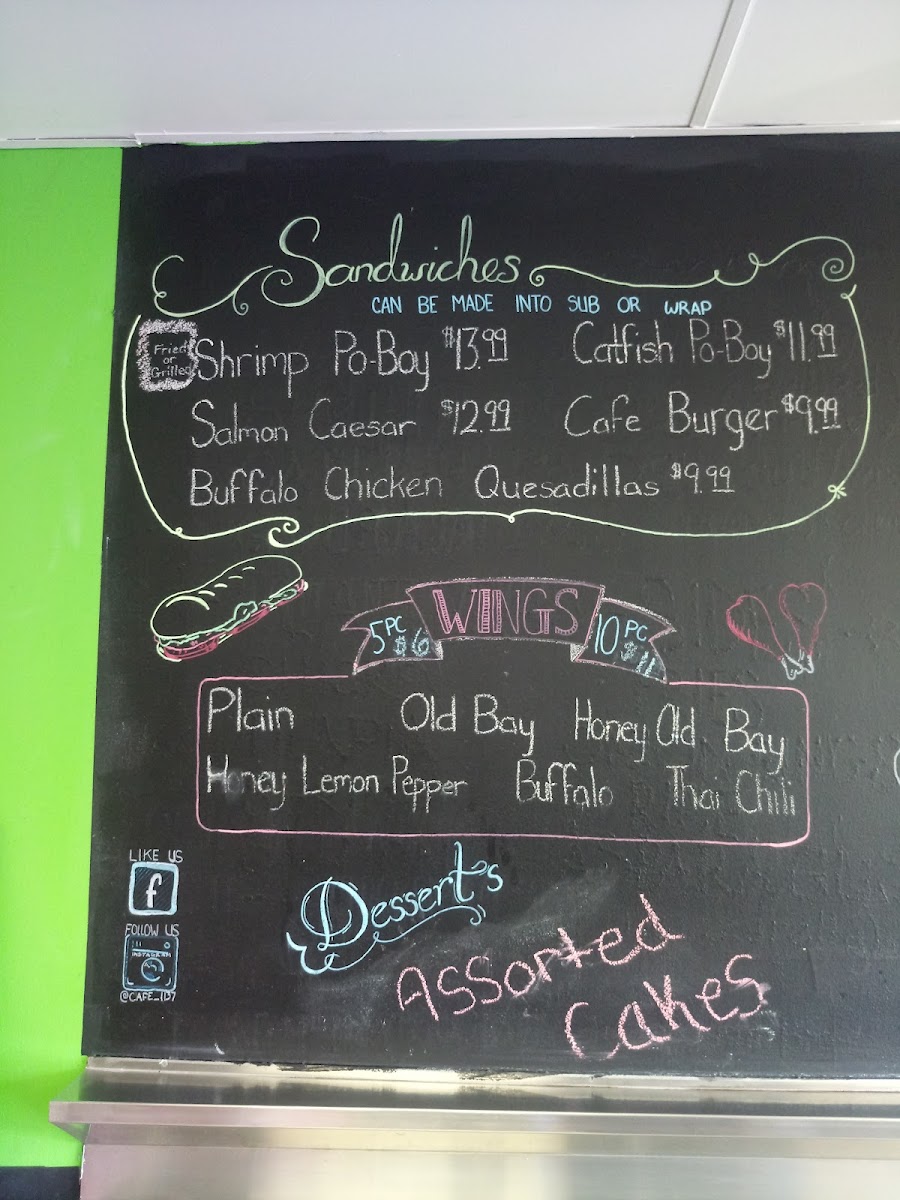 Sandwiches
CAN BE MADE INTO SUB OR WRAP
Fried
or
Grilled
Shrimp Po-Boy $13.99 Catfish Po-Boy $11.99
Salmon Caesar $12.99 Cafe Burger $9.99
Buffalo Chicken Quesadillas $9.99
WINGS
5 PC
$6
10 PC
$11
Plain Old Bay Honey Old Bay
Honey Lemon Pepper Buffalo Thai Chili
LIKE US
f
FOLLOW US
INSTAGRAM
@CAFE_1137
Dessert's
Assorted
Cakes